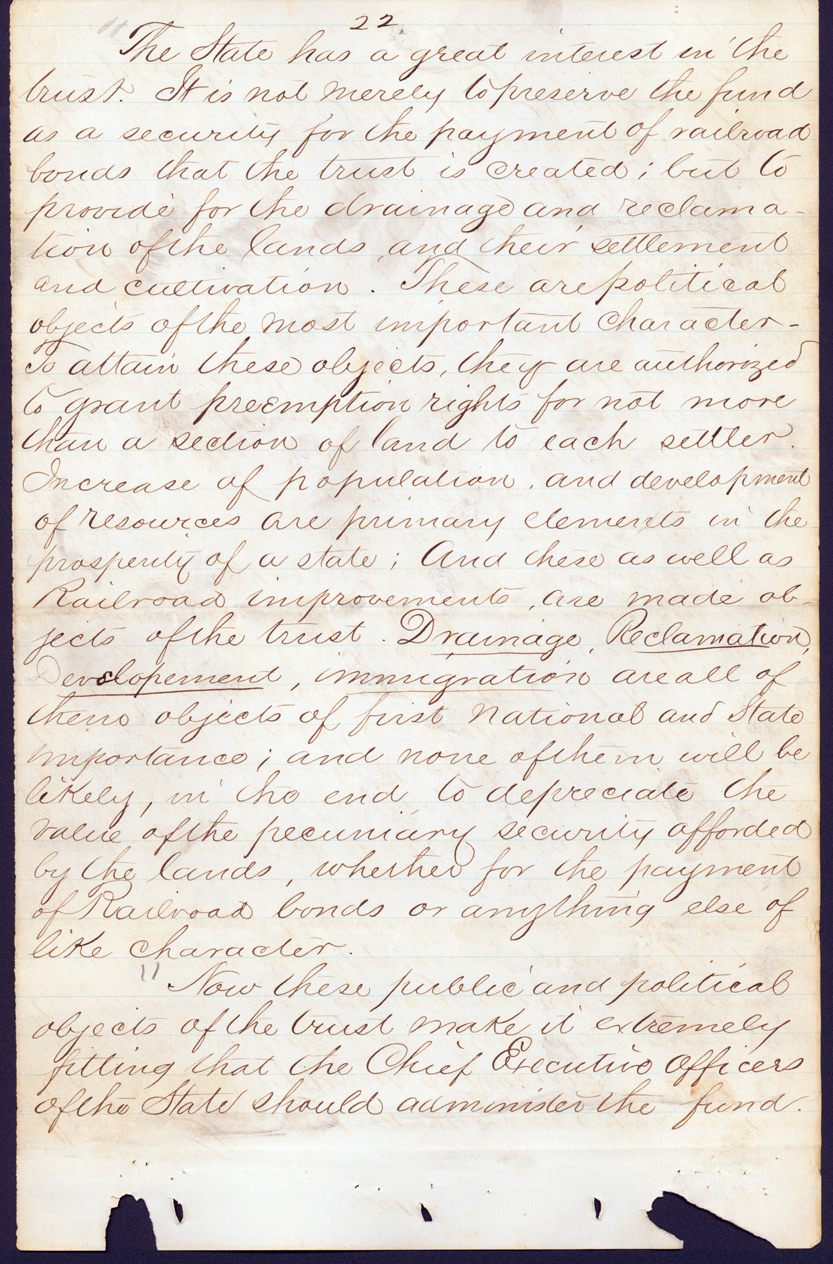 22
" The State has a great interest in the
trust. It is not merely to preserve the fund
as a security for the payment of railroad
bonds that the trust is created; but to
provide for the drainage and reclama-
tion of the lands, and their settlement
and cultivation. These are political
objects of the most important character-
To attain these objects, they are authorized
to grant preemption rights for not more
than a section of land to each settler.
Increase of population, and development
of resources are primary elements in the
prosperity of a state; And these as well as
Railroad improvements, are made ob-
jects of the trust. Drainage, Reclamation,
Developement, immigration are all of
them objects of first National and State
importance; and none of them will be
likely, in the end to depreciate the
value of the pecuniary security afforded
by the lands, whether for the payment
of Railroad bonds or anything else of
like character.
" Now these public and political
objects of the trust make it extremely
fitting that the Chief Executive Officers
of the State should administer the fund.